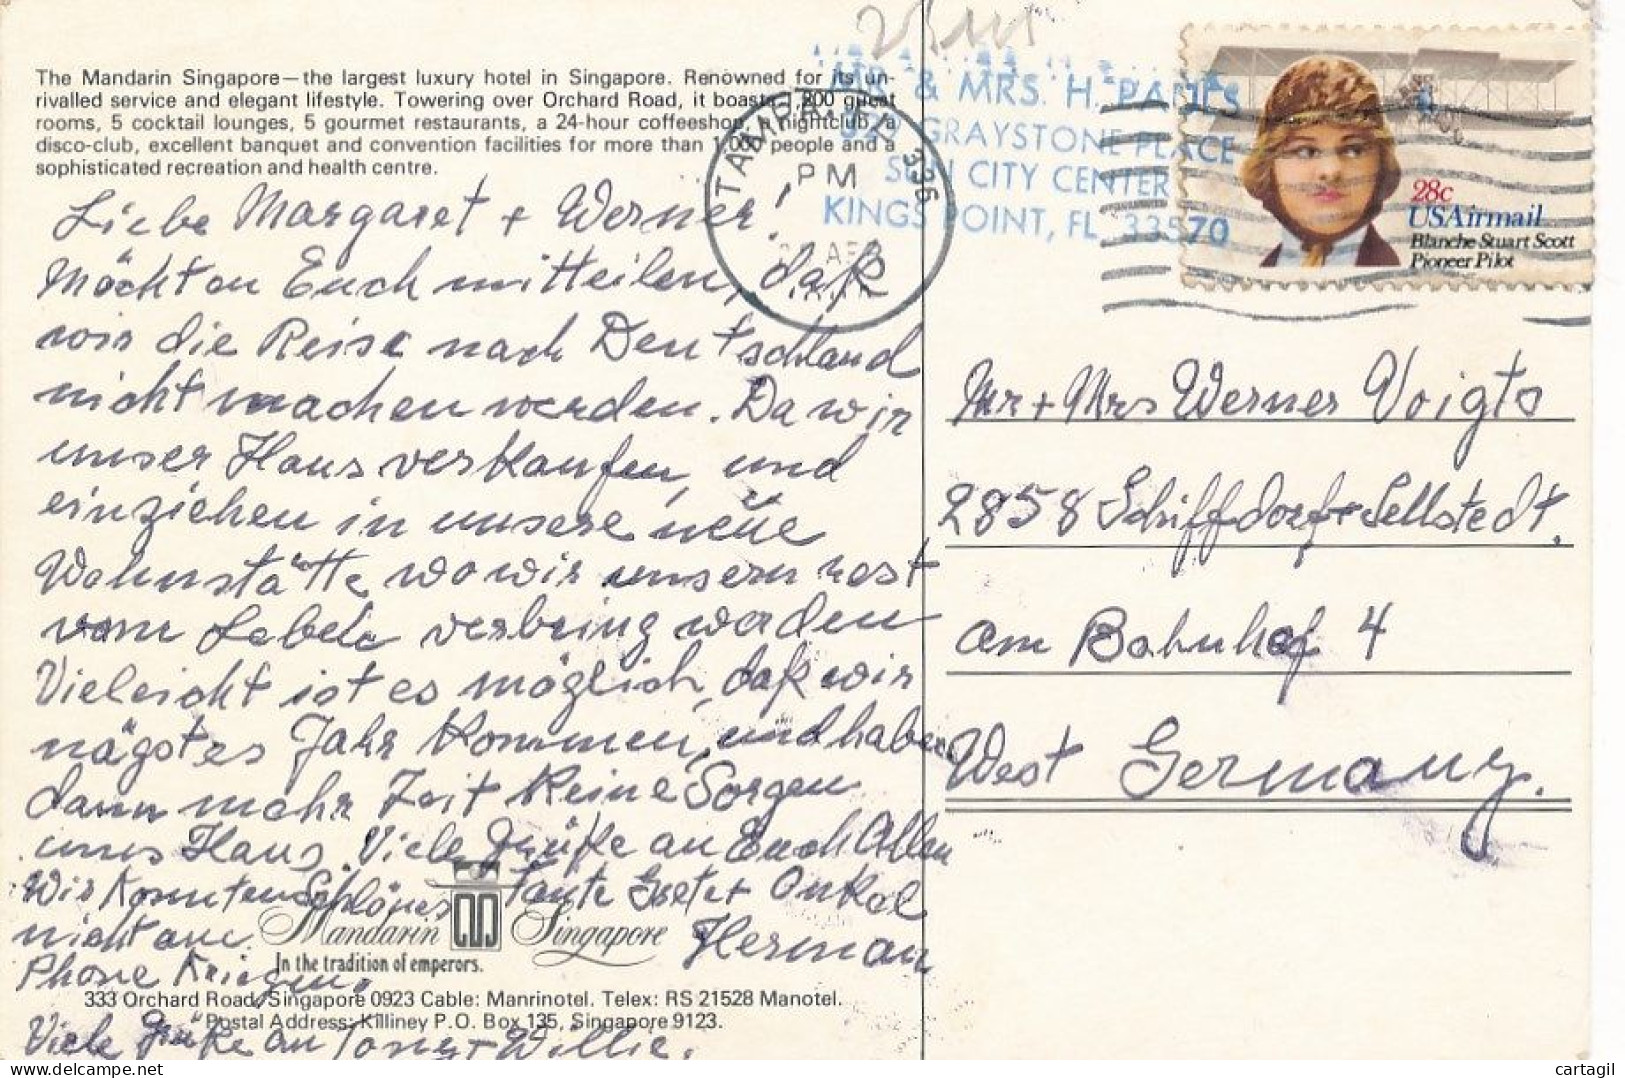 The Mandarin Singapore—the largest luxury hotel in Singapore. Renowned for its un-
rivalled service and elegant lifestyle. Towering over Orchard Road, it boasts 1,200 guest
rooms, 5 cocktail lounges, 5 gourmet restaurants, a 24-hour coffeeshop, a nightclub, a
disco-club, excellent banquet and convention facilities for more than 1,000 people and a
sophisticated recreation and health centre.
Liebe Margaret + Werner!
Möchten Euch mitteilen, daß
wir die Reise nach Deutschland
nicht machen werden. Da wir
unser Haus verkaufen, und
einziehen in unsere neue
Wohnstätte wo wir unsern rest
vom Leben verbring werden
Vieleicht ist es möglich, daß wir
nägstes Jahr kommen, und haben
dann mehr Zeit keine Sorgen
ums Haus. Viele Grüße an Euch Allen
Wir konnten Schlönes Tante Grete + Onkel
nicht am Herman
Phone kriegen.
Viele Grüße an Toney + Willie.
Mandarin Singapore
In the tradition of emperors.
333 Orchard Road, Singapore 0923 Cable: Manrinotel. Telex: RS 21528 Manotel.
Postal Address: Killiney P.O. Box 135, Singapore 9123.
MR. & MRS. H. PAULS
GRAYSTONE PLACE
SUN CITY CENTER
KINGS POINT, FL 33570
TAMPA, FL 336
PM
28c
USAirmail
Blanche Stuart Scott
Pioneer Pilot
Mr + Mrs Werner Voigts
2858 Schiffdorf-Sellstedt.
am Bahnhof 4
West Germany.
cartagil